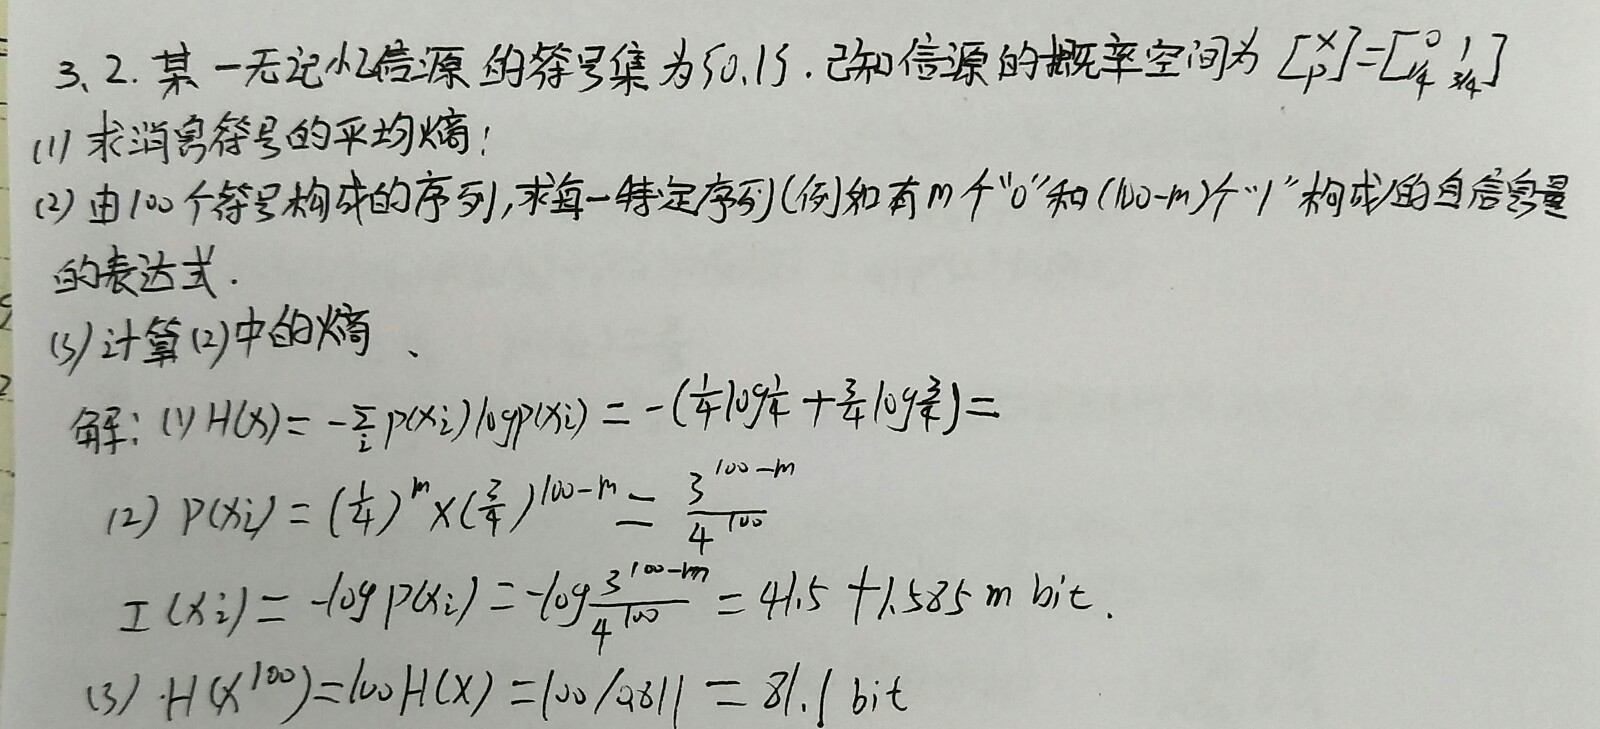 3、2. 某一无记忆信源的符号集为{0,1}. 已知信源的概率空间为 [X P]=[0 1 1/4 3/4]
(1) 求消息符号的平均熵;
(2) 由100个符号构成的序列,求每一特定序列(例如有m个"0"和(100-m)个"1"构成)的自信息量
的表达式.
(3) 计算(2)中的熵、
解: (1) H(X)= -∑i P(xi)logp(xi) = -(1/4log1/4+3/4log3/4)=
(2) P(xi) = (1/4)^m×(3/4)^100-m = 3^100-m/4^100
I(xi)= -logp(xi)= -log3^100-m/4^100 = 41.5+1.585m bit.
(3) H(X^100)=100H(X) =100/0.811 = 81.1 bit